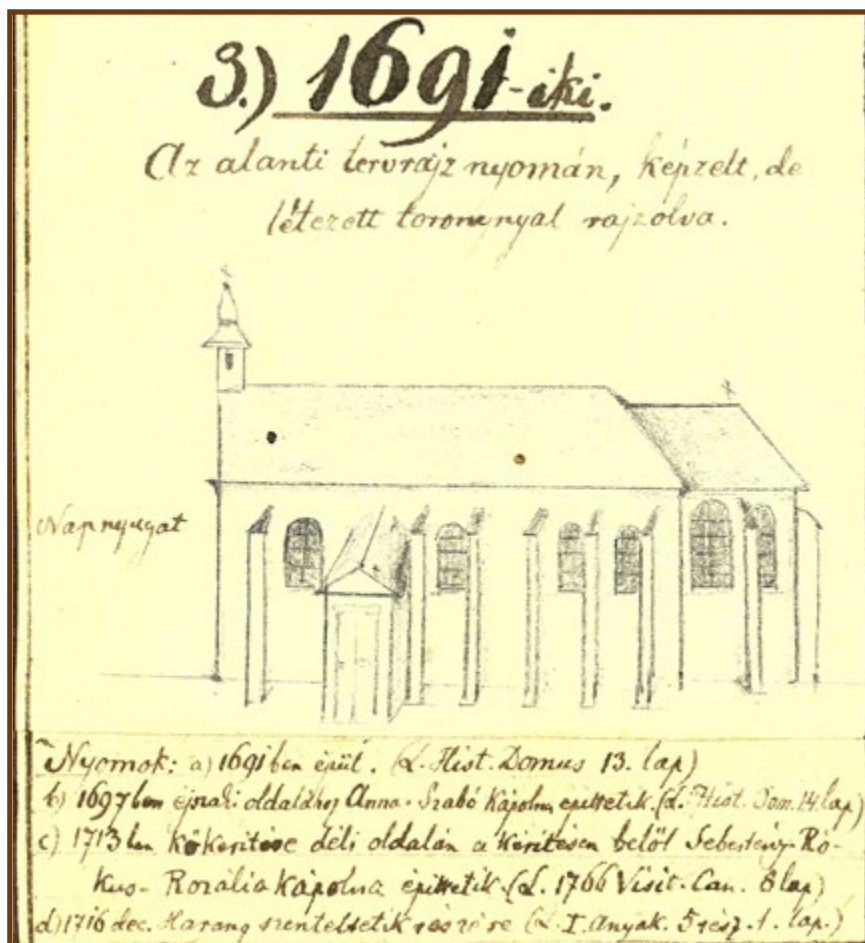 3.) 1691-iki.
Az alanti tervrajz nyomán, képzelt, de
létezett toronynyal rajzolva.
Napnyugat
Nyomok: a) 1691 ben épül. (L. Hist. Domus 13. lap)
b) 1697 ben éjszaki oldalához Anna-Szabó kápolna építtetik. (L. Hist. Dom. 14 lap)
c) 1713 ban kőkerítése déli oldalán a kerítésen belől Sebestény-Ró-
kus-Rozália kápolna építtetik (L. 1766 Visit. Can. 8 lap)
d) 1716 dec. Harang szenteltetik részére (L. I. Anyak. 5 rész. 1. lap.)